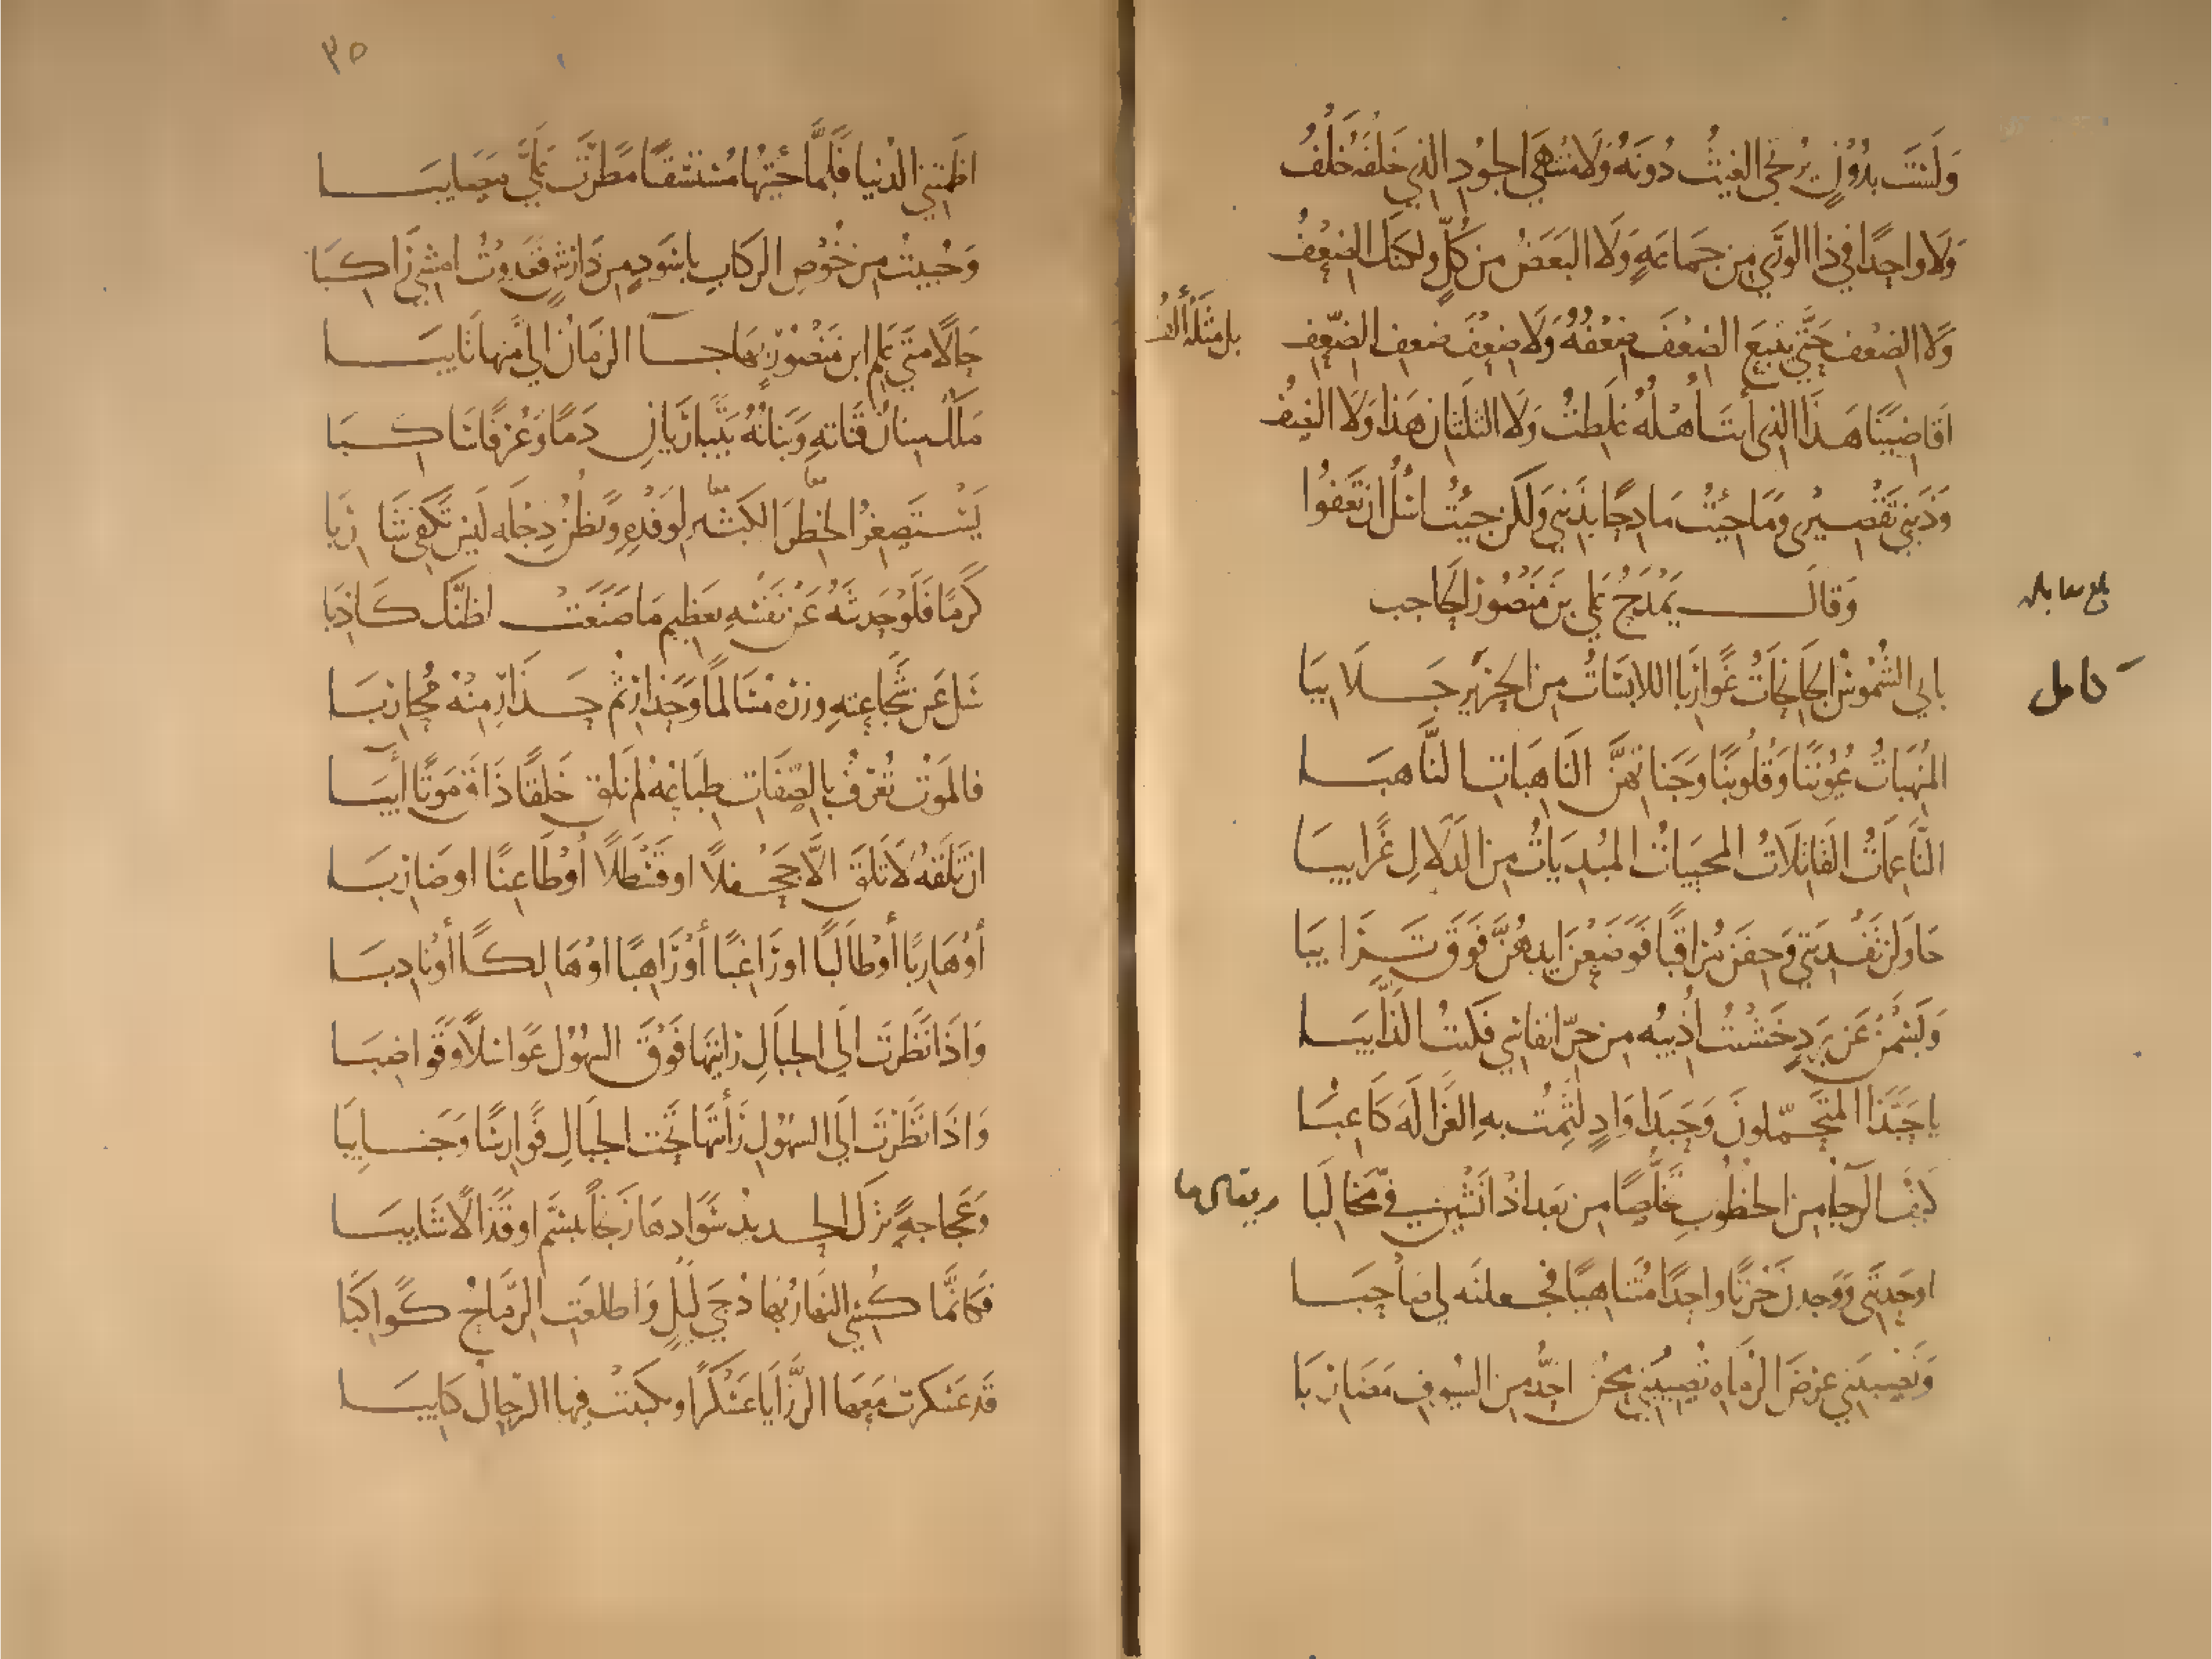 وَلَسْتَ بدُوْنٍ يُرتجَى الغيثُ دُونَهُ وَلَا مُنتهَى الجوُدِ الذي خَلفَهُ خَلْفُ
وَلَا واحِدًا فِي ذا الوَرَى مِن جَماعَةٍ وَلَا البَعَضُ من كُلٍّ ولكنَّك الضِعْفُ
وَلَا الضِعْف حَتَّى يَتبعَ الضعْفَ ضِعْفُهُ وَلَا ضِعْفَ ضعفِ الضِّعْفِ
بل مثلَهُ ألفُ
اَقاضِيَنَا هَذا الذي أنتَ أهْلُهُ غَلِطتُ وَلَا الثلثَانِ هَذا وَلَا النِصْفُ
وَذَنبي تَقْصِيْرِي وَمَا جِئتُ مَادِحًا بذَنبي وَلَكن جئْتُ اسْألُ ان تَعْفوُا
وَقالَ يَمْدَحُ عَلي بن مَنْصُور الحاجب
بلغ مقابلة
كامل
بابي الشُمُوسُ الجَانِحَاتُ غَوارِبَا اللابسَاتُ مِن الحَريرِ جَلَابِيَا
المُنْهِبَاتُ عُيُونَنَا وَقُلُوبَنَا وَجَنَاتِهنَّ النَاهِبَاتِ النَّاهبَا
النَّاعِمَاتُ القَاتِلَاتُ المحيِيَاتُ المُبْدِيَاتُ مِنَ الدَلَالِ غَرايبَا
حَاوَلنَ تَفْدِيَتي وَخِفنَ مُرَاقبًا فَوَضَعْنَ ايدِيهُنَّ فَوَقَ تَرَايبَا
وَبَسَمْنَ عَن بَرَدٍ خَشِيْتُ اُذيبُه مِن حَرّ انفاسِي فكنتُ الذَايبَا
يا حَبَّذَا المتَحَمّلونَ وَحَبَذا وَادٍ لَثِمْتُ بهِ الغَزالَهَ كَاعِبًا
كَيْفَ الرَجاءُ مِنَ الخطُوبِ تَخَلُّصًا مِن بَعدِ اذْ انْشَبْنَ فيّ مخَالبَا
ويقال ما
اوحَدْنَنِي وَوَجدنَ حُزنًا واحِدًا مُتَناهِيًا فجعلنَه لي صَاحِبَا
وَنَصَبْنَنِي غَرَضَ الرُّمَاةِ تُصِيْبُنِي مِحَنٌ احَدُّ مِن السُيوفِ مَضَارِبَا
٣٥
اَظْمَتنِي الدُنيا فَلَمَّا جئتُها مُسْتسْقيًا مَطَرَتْ عَلَيَّ مَصَايبَا
وَحُبيتُ مِن خُوْصِ الرِكابِ باسْوَدٍ مِن دَارِشٍ فَغَدَوْتُ امْشِي رَاكِبَا
حالًا متَى عَلِمَ ابن مَنْصُورٍ بهَا جَاءَ الزمَانُ الي مِنها تَايبَا
مَلِكٌ سِنانُ قَناتِهِ وَبَنَانُهُ يَتَبارَيانِ دَمًا وَعُرْفًا سَاكِبَا
يَسْتَصغِرُ الخَطَرَ الكبيْر لوَفدِهِ وَيظُنُ دِجْلَه لَيسَ تَكفي شارِبَا
كَرَمًا فَلَو حَدثتَهُ عَنْ نَفْسِهِ بعَظيمِ مَا صَنَعَتْ لظنَّك كَاذبَا
سَل عَن شَجاعَتِهِ وزرْهُ مُسَالمًا وَحَذارِ ثم حَذارِ مِنهُ مُحَارِبَا
فالمَوْتُ تُعْرَفُ بالصِفَاتِ طِبَاعُهُ لم تَلقَ خَلقًا ذَاقَ مَوتًا اَيبَا
ان تَلْقَهُ لَا تَلقَ الَّا جَحْفلًا او قَسْطَلًا اَوْ طَاعِنًا او ضَارِبَا
أوْ هَارِبًا أَوْ طَالبًا او رَاغِبًا أَوْ رَاهِبًا اوْ هَالِكًا أوْ نَادِبَا
وَاذَا نَظَرتَ الَى الجِبَالِ رَايْتَهَا فَوْقَ السُهُوْلِ عَوَاسِلًا وَقَواضِبَا
وَاذَا نَظَرْتَ الَي السهُوْلِ رَأَيْتَهَا تَحْتَ الجِبَالِ فَوَارِسًا وَجَنَايبَا
وَعَجَاجَةً تَرَكَ الحَديْدُ سَوَادهَا زَنجًا تَبَسَّم او قَذَالًا شَايبَا
فكانَّمَا كُسِيَ النهَارُ بهَا دُجَى لَيلٍ وَاطلعَتِ الرّمَاحُ كَوَاكبَا
قَد عَسْكَرتْ مَعَها الرَّزَايَا عَسْكَرًا وتكتَبتْ فيها الرّجالُ كتَايبَا